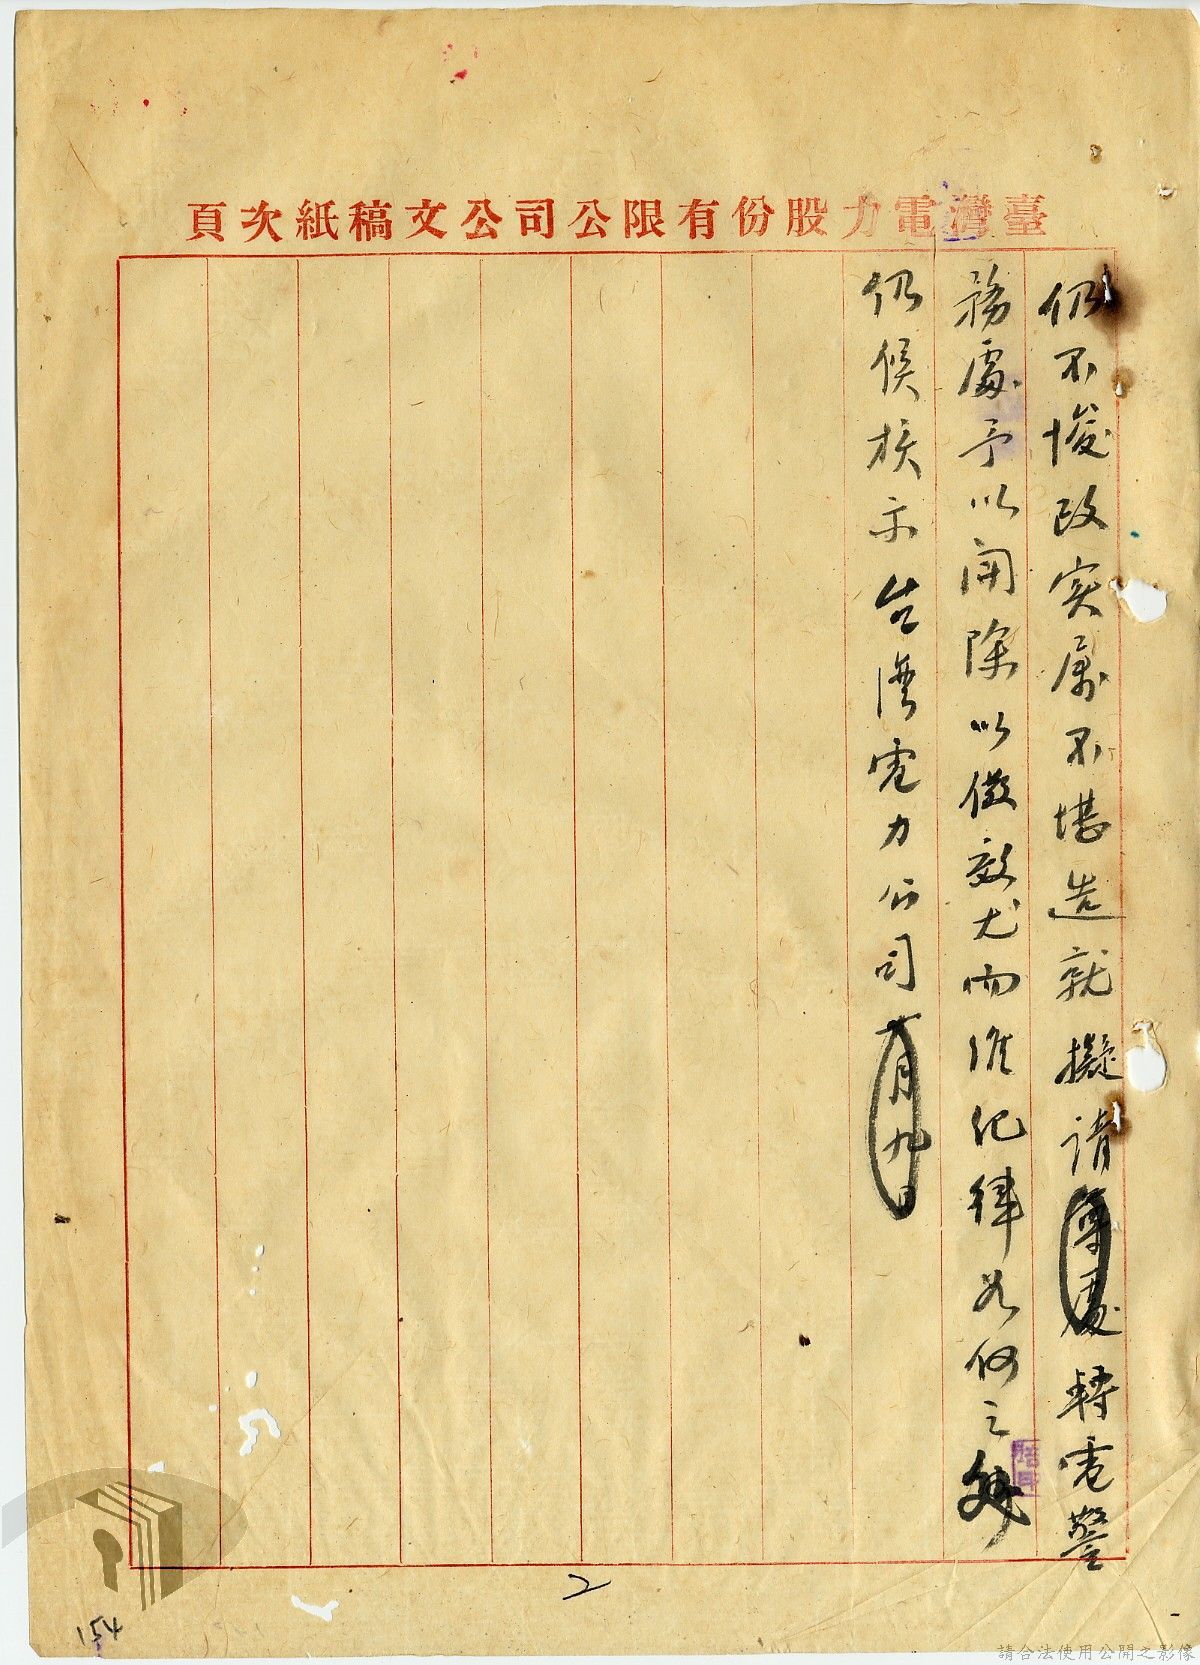 臺灣電力股份有限公司公文稿紙次頁
仍不悛改实属不堪造就擬请專處轉電警
務處予以開除以儆效尤而维纪律如何之處
仍候核示台湾電力公司 月九日
2
154
請合法使用公開之影像